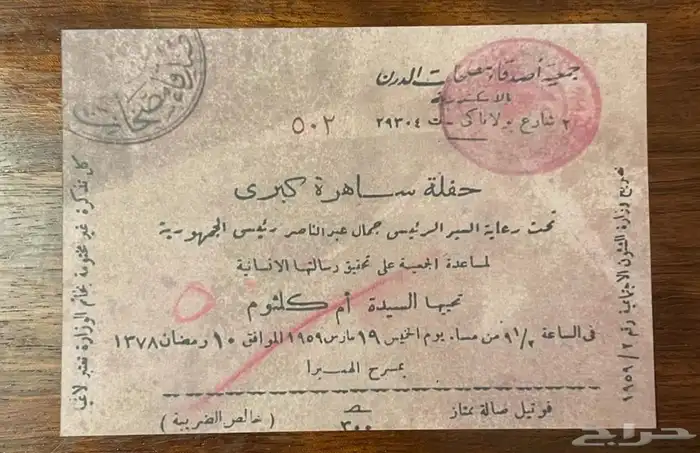 جمعية أصدقاء مصحات الدرن
بالاسكندرية
٢ شارع بولاناكى - ت ٢٩٣٠٤
٥٠٢
حفلة ساهرة كبرى
تحت رعاية السيد الرئيس جمال عبد الناصر رئيس الجمهورية
لمساعدة الجمعية على تحقيق رسالتها الانسانية
تحييها السيدة أم كلثوم
فى الساعة ٩١/٢ من مساء يوم الخميس ١٩ مارس ١٩٥٩ الموافق ١٠ رمضان ١٣٧٨
بمسرح الهمبرا
فوتيل صالة ممتاز
٣٠٠
( خالص الضريبة )
تصريح وزارة الشئون الاجتماعية رقم ٢ / ١٩٥٩
كل تذكرة غير مختومة بخاتم الوزارة تعتبر لاغية
أصدقاء مصحات
حراج